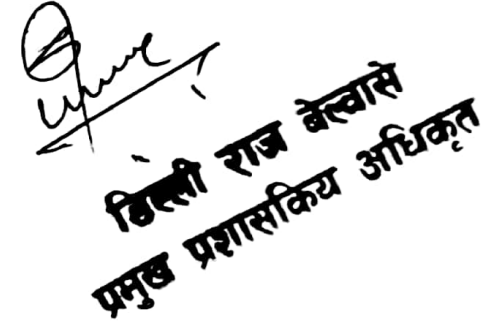 डिल्ली राज बेल्वासे
प्रमुख प्रशासकिय अधिकृत